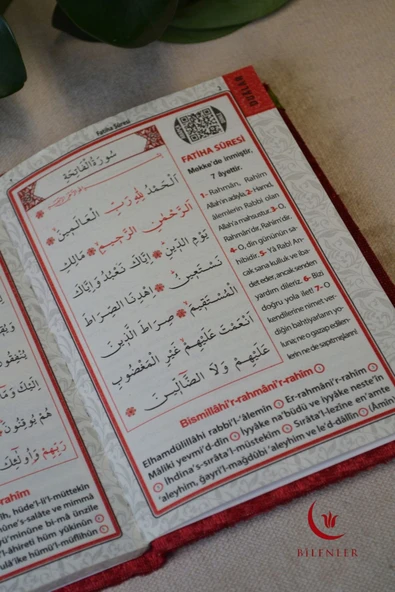 2
DUALAR
Fatiha Sûresi
سُورَةُ الْفَاتِحَةِ
اَلْحَمْدُ لِلّٰهِ رَبِّ الْعَالَمِينَ
اَلرَّحْمٰنِ الرَّحِيمِ مَالِكِ
يَوْمِ الدِّينِ اِيَّاكَ نَعْبُدُ وَاِيَّاكَ
نَسْتَعِينُ اِهْدِنَا الصِّرَاطَ
الْمُسْتَقِيمَ صِرَاطَ الَّذِينَ
اَنْعَمْتَ عَلَيْهِمْ غَيْرِ الْمَغْضُوبِ
عَلَيْهِمْ وَلَا الضَّالِّينَ
FATİHA SÛRESİ
Mekke'de inmiştir.
7 âyettir.
1- Rahmân, Rahîm
Allah'ın adıyla. 2- Hamd,
âlemlerin Rabbi olan
Allah'a mahsustur. 3- O,
Rahmân'dır, Rahîm'dir.
4- O, din gününün sa-
hibidir. 5- Yâ Rab! An-
cak sana kulluk ve iba-
det eder, ancak senden
yardım dileriz. 6- Bizi
doğru yola ilet! 7- O
kendilerine nimet ver-
diğin bahtiyarların yo-
luna; ne o gazap edilen-
lerin ne de sapmışların!
Bismillâhi'r-rahmâni'r-rahîm
Elhamdülillâhi rabbi'l-'âlemîn Er-rahmâni'r-rahîm
Mâliki yevmi'd-dîn İyyâke na'büdü ve iyyâke neste'în
İhdina's-sırâta'l-müstekîm Sırâta'l-lezîne en'amte
'aleyhim, ğayri'l-mağdûbi 'aleyhim ve le'd-dâllîn (Âmîn)
هُمْ يُوقِنُونَ
رَبِّهِمْ وَاُولٰئِكَ
rahîm
h, hüde'l-li'l-müttekîn
ûne's-salâte ve mimmâ
yü'minûne bi-mâ ünzile
l-âhireti hüm yûkınûn
ulâike hümü'l-müflihûn
BİLENLER